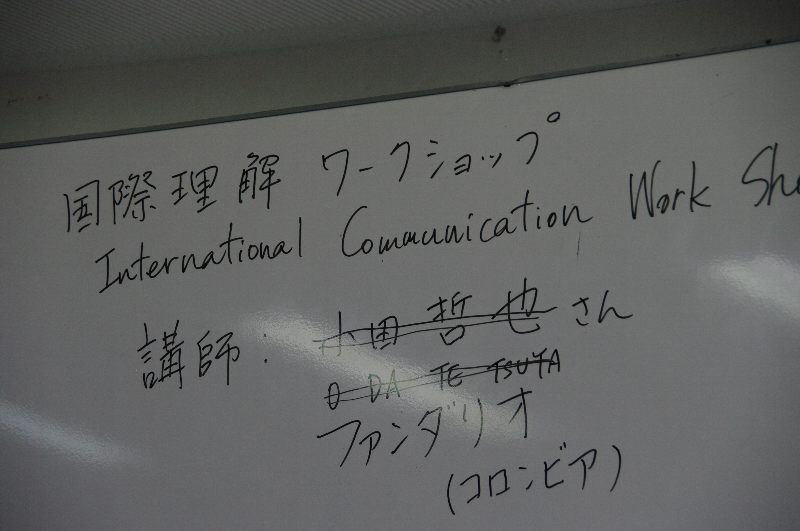 国際理解 ワークショップ
International Communication Work Sho
講師: 小田 哲也 さん
O DA TE TSUYA
ファンダリオ
(コロンビア)